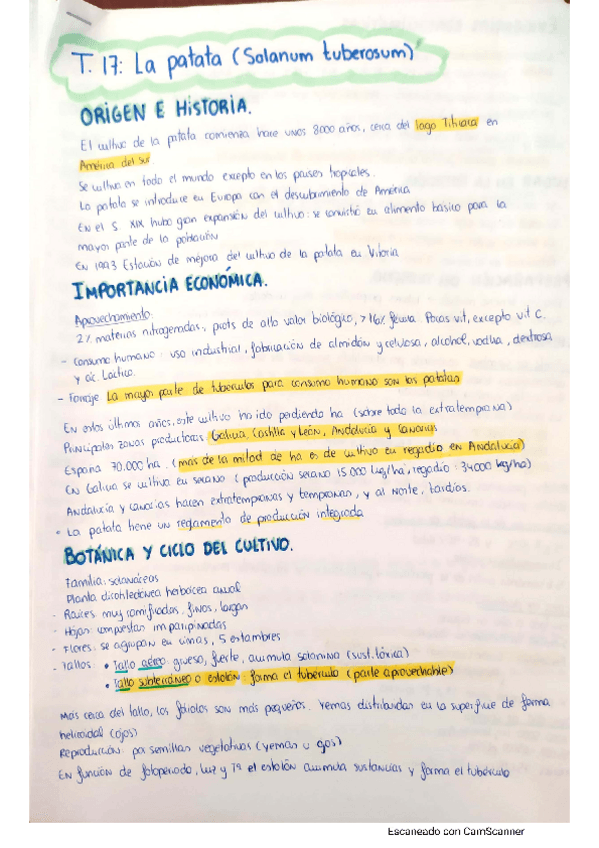 T. 17: La patata (Solanum tuberosum)
ORIGEN E HISTORIA.
El cultivo de la patata comienza hace unos 8000 años, cerca del lago Titicaca en
América del Sur
Se cultiva en todo el mundo excepto en los países tropicales.
La patata se introduce en Europa con el descubrimiento de América
En el S. XIX hubo gran expansión del cultivo: se convirtió en alimento básico para la
mayor parte de la población
En 1993 Estación de mejora del cultivo de la patata en Vitoria
IMPORTANCIA ECONÓMICA.
Aprovechamiento:
2% materias nitrogenadas, prots de alto valor biológico, > 16% fécula. Pocas vit, excepto vit C.
- Consumo humano: uso industrial, fabricación de almidón y celulosa, alcohol, vodka, dextrosa
y ác. Láctico.
- Forraje La mayor parte de tubérculos para consumo humano son las patatas
En estos últimos años, este cultivo ha ido perdiendo ha (sobre todo la extratemprana)
Principales zonas productoras: Galicia, Castilla y León, Andalucía y Canarias
España 70.000 ha. (más de la mitad de ha es de cultivo en regadío en Andalucía)
En Galicia se cultiva en secano (producción secano 15.000 kg/ha, regadío: 34000 kg/ha)
Andalucía y canarias hacen extratempranas y tempranas, y al Norte, tardías.
• La patata tiene un reglamento de producción integrada
BOTÁNICA Y CICLO DEL CULTIVO.
Familia: solanáceas
Planta dicotiledónea herbácea anual
- Raíces muy ramificadas, finas, largas
- Hojas: compuestas imparipinadas
- Flores: se agrupan en cimas, 5 estambres
- Tallos: • Tallo aéreo: grueso, fuerte, acumula solanina (sust. tóxica)
• Tallo subterráneo o estolón: forma el tubérculo (parte aprovechable)
Más cerca del tallo, los folíolos son más pequeños. Yemas distribuidas en la superficie de forma
helicoidal (ojos)
Reproducción por semillas vegetativas (yemas u ojos)
En función de fotoperiodo, luz y Tª el estolón acumula sustancias y forma el tubérculo
Escaneado con CamScanner